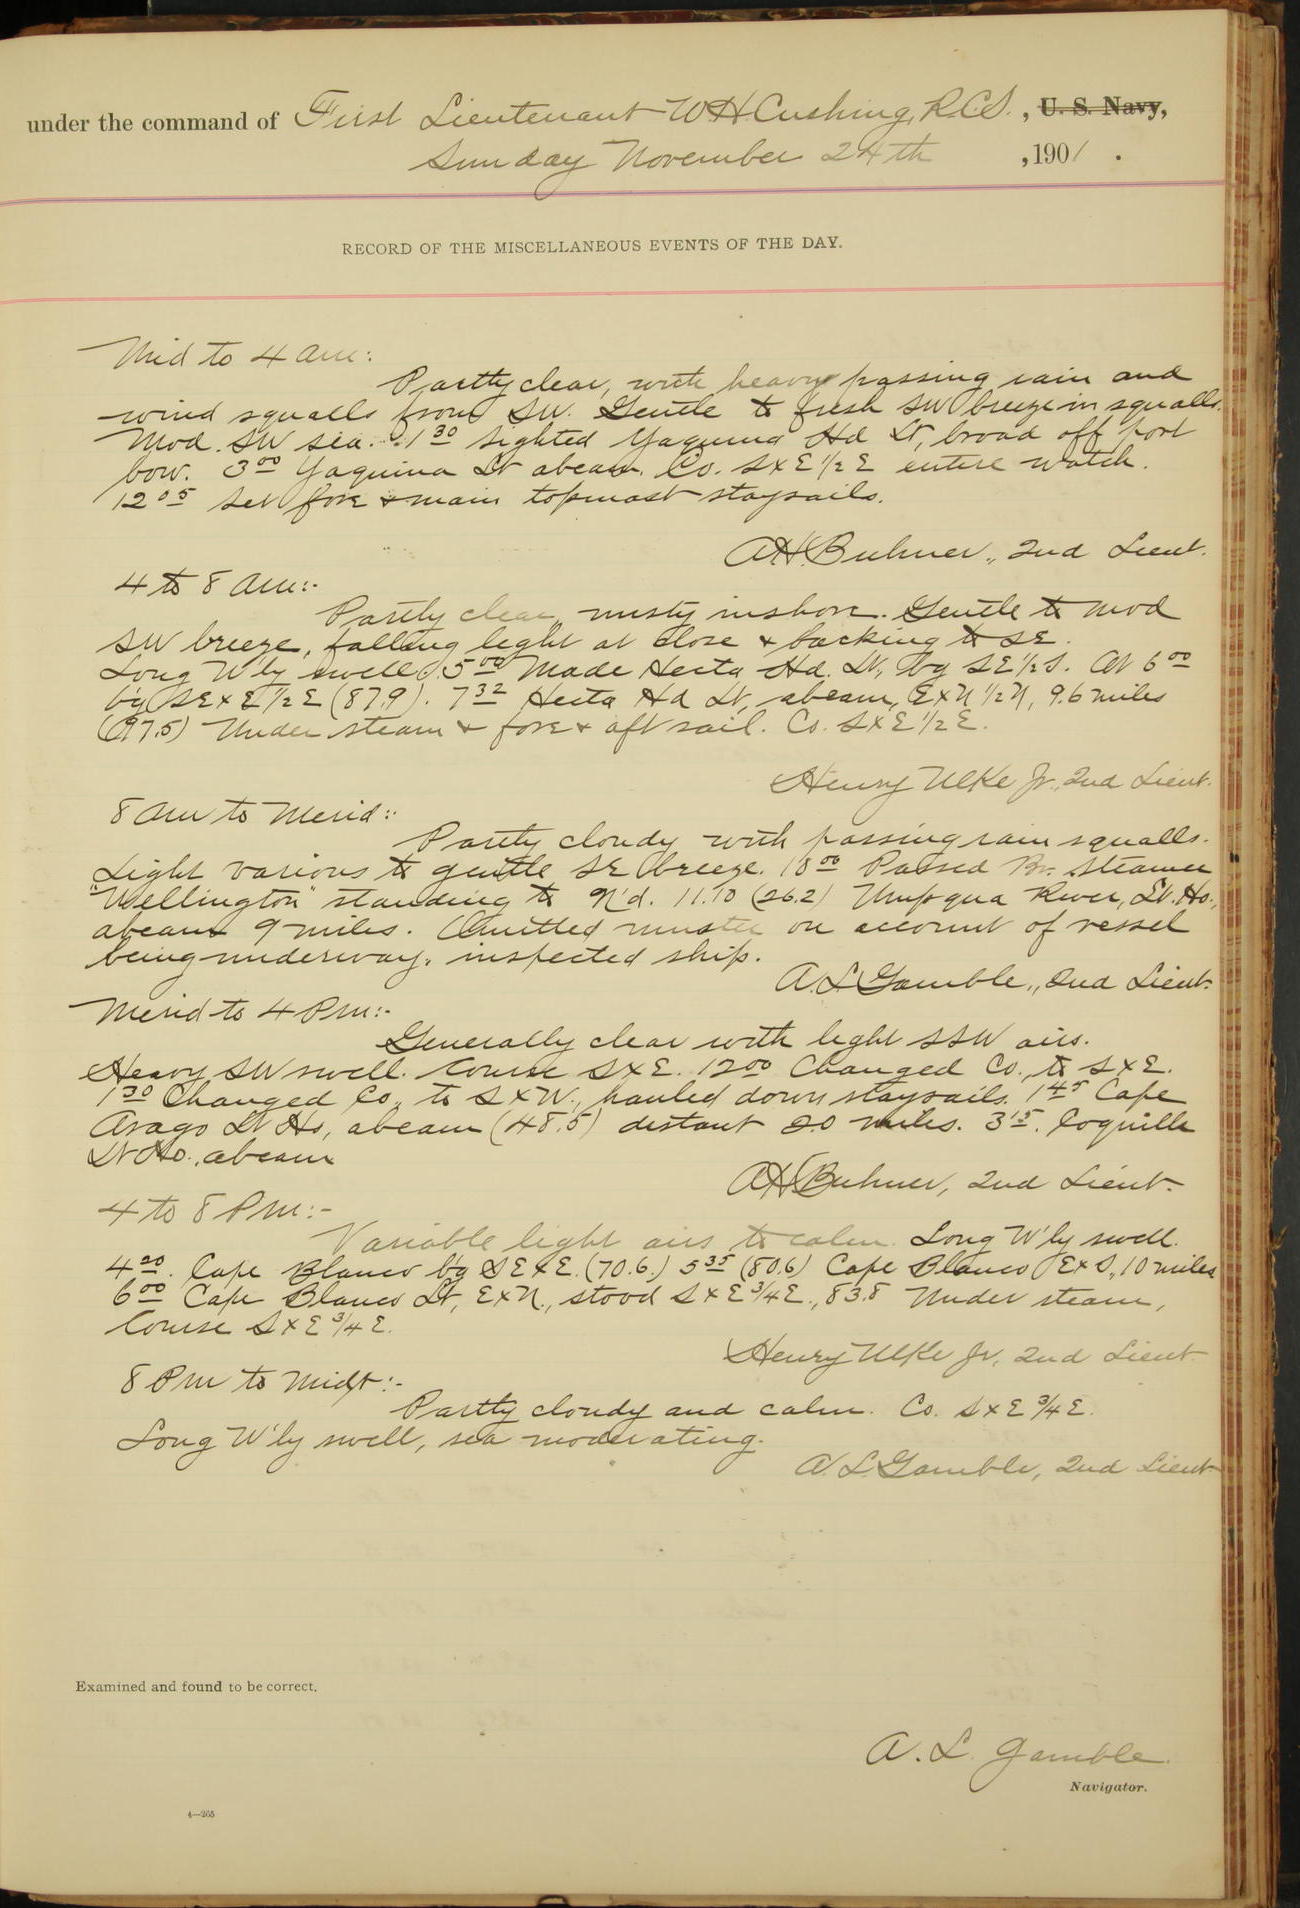 under the command of First Lieutenant W H Cushing, R.C.S. , U. S. Navy,
Sunday November 24th , 1901 .
RECORD OF THE MISCELLANEOUS EVENTS OF THE DAY.
Mid to 4 am:
Partly clear, with heavy passing rain and
wind squalls from SW. Gentle to fresh SW breeze in squalls.
Mod. SW sea. 1 30 sighted Yaquina Hd Lt, broad off port
bow. 3 00 Yaquina Lt abeam. Co. SxE 1/2 E entire watch.
12 05 set fore & main topmast staysails.
A H Buhner, 2nd Lieut.
4 to 8 am:-
Partly clear, misty inshore. Gentle to mod
SW breeze, falling light at close & backing to SE.
Long W'ly swell. 5 00 Made Hecta Hd. Lt, by SE 1/2 S. At 6 00
by SExE 1/2 E (87.9). 7 32 Hecta Hd Lt, abeam, ExN 1/2 N, 9.6 miles
(97.5) Under steam & fore & aft sail. Co. SxE 1/2 E.
Henry Ulke Jr., 2nd Lieut.
8 am to Merid:-
Partly cloudy with passing rain squalls.
Light various to gentle SE breeze. 8 00 Passed Br. Steamer
"Wellington" standing to N'd. 11.10 (26.2) Umpqua River, Lt. Ho.,
abeam 9 miles. Omitted muster on account of vessel
being underway, inspected ship.
A. L. Gamble, 2nd Lieut.
Merid to 4 Pm:-
Generally clear with light SSW airs.
Heavy SW swell. Course SxE. 12 00 Changed Co., to SxE.
1 30 Changed Co., to SxW., hauled down staysails. 1 45 Cape
Arago Lt Ho, abeam (48.5) distant 2.0 miles. 3 15. Coquille
Lt Ho. abeam
A H Buhner, 2nd Lieut.
4 to 8 Pm:-
Variable light airs to calm. Long W'ly swell.
4 20. Cape Blanco by SExE. (70.6.) 5 35 (80.6) Cape Blanco ExS., 10 miles
6 00 Cape Blanco Lt, ExN., stood SxE 3/4 E., 83.8 Under steam,
Course SxE 3/4 E.
Henry Ulke Jr, 2nd Lieut.
8 Pm to Midt:-
Partly cloudy and calm. Co. SxE 3/4 E.
Long W'ly swell, sea moderating.
A. L. Gamble, 2nd Lieut
Examined and found to be correct.
A. L. Gamble
Navigator.
4—265